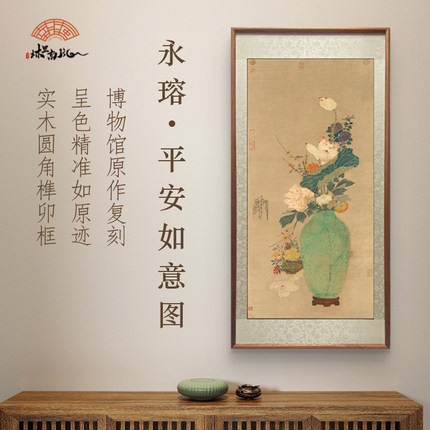 永瑢·平安如意图
博物馆原作复刻
呈色精准如原迹
实木圆角榫卯框